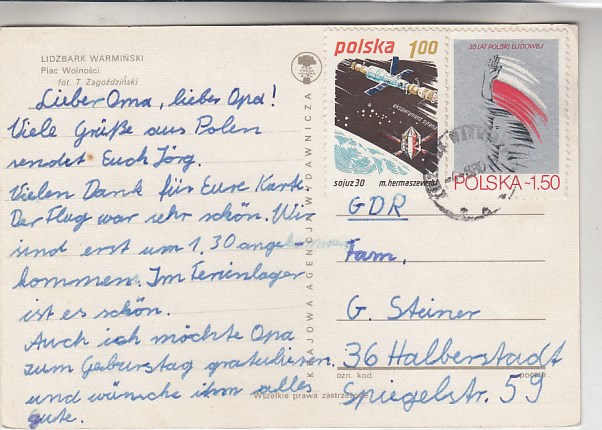 LIDZBARK WARMIŃSKI
Plac Wolności
fot. T. Zagoździński
Lieber Oma, lieber Opa!
Viele Grüße aus Polen
sendet Euch Jörg.
Vielen Dank für Eure Karte.
Der Flug war sehr schön. Wir
sind erst um 1.30 ange
kommen. Im Ferienlager
ist es schön.
Auch ich möchte Opa
zum Geburstag gratulieren
und wünsche ihm alles
gute.
KRAJOWA AGENCJA WYDAWNICZA
polska 1.00
sojuz 30 m.hermaszewski
35 LAT POLSKI LUDOWEJ
POLSKA ~1.50
GDR
Fam.
G. Steiner
36 Halberstadt
Spiegelstr. 59
ozn. kod poczta
Wszelkie prawa zastrzeżone